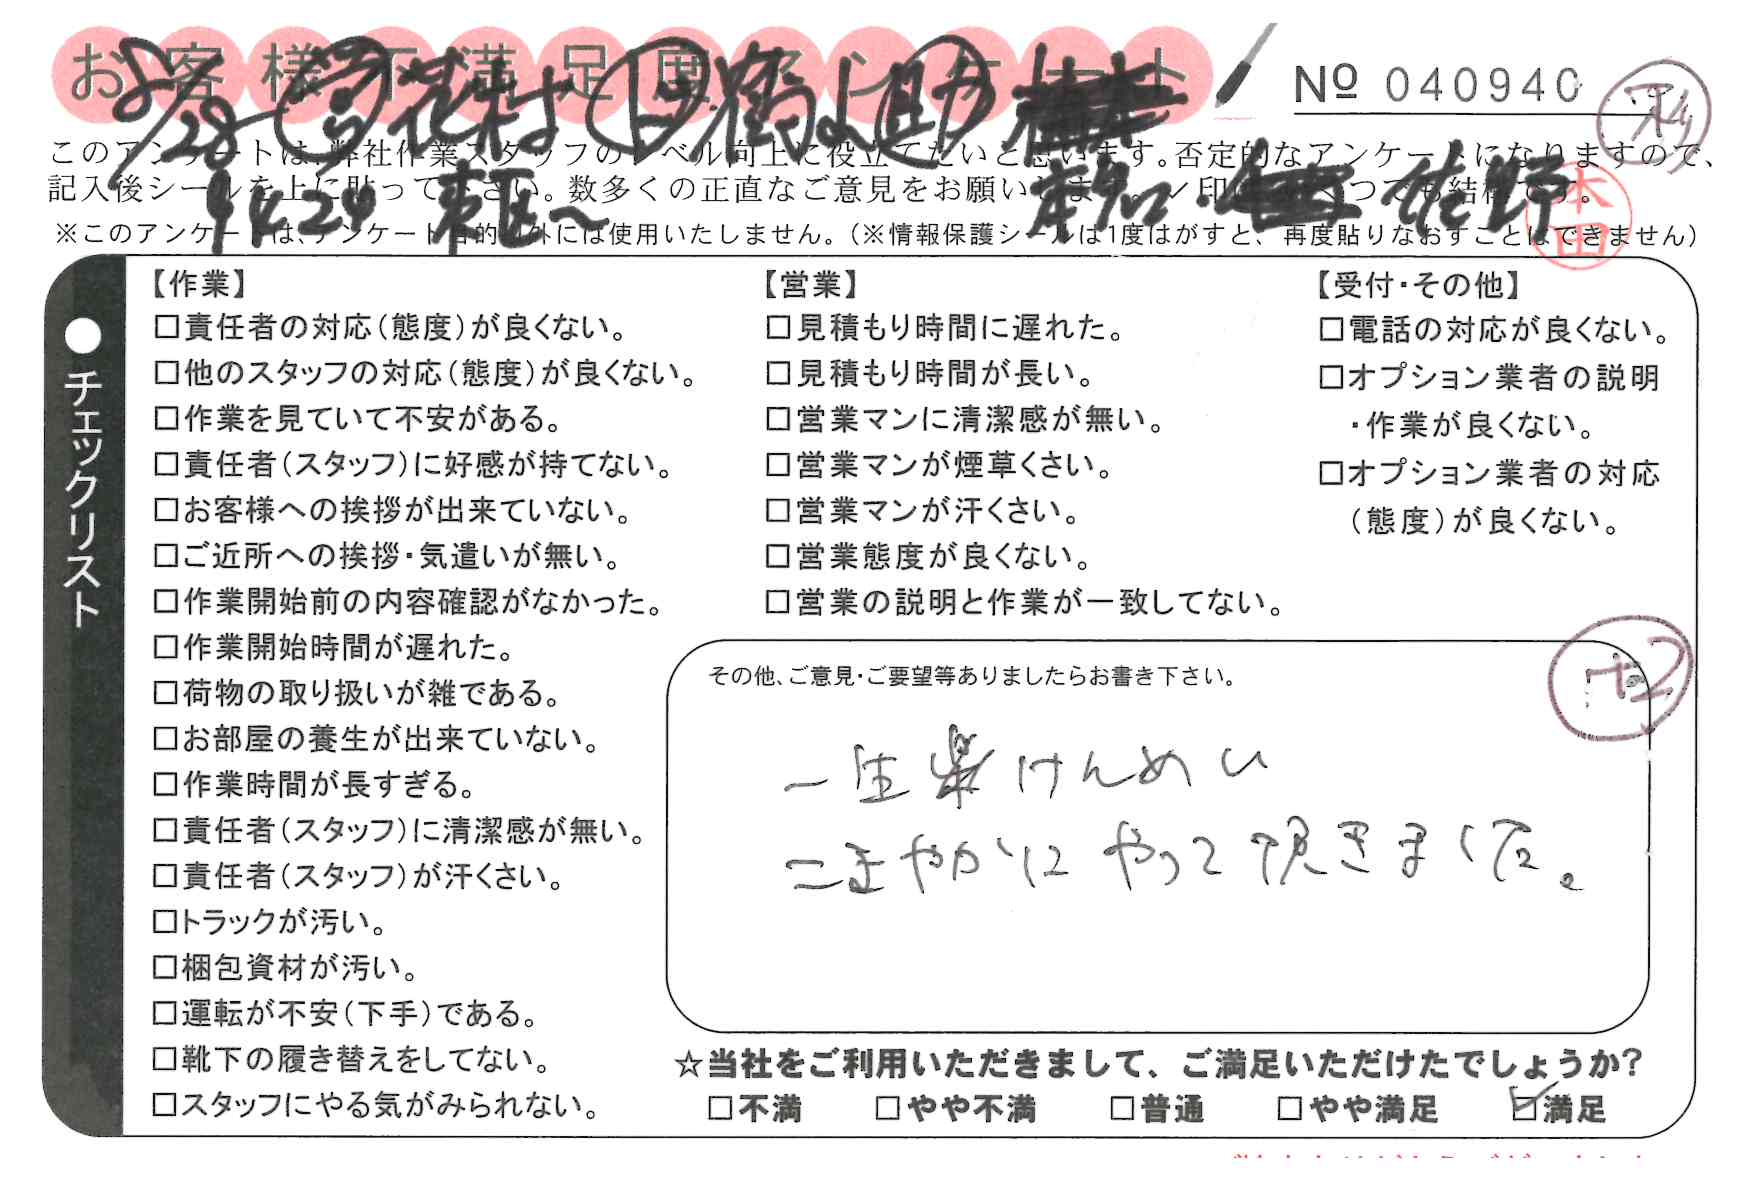 お客様不満足度アンケート
№ 040940
このアンケートは、弊社作業スタッフのレベル向上に役立てたいと思います。否定的なアンケートになりますので、
記入後シールを上に貼って下さい。数多くの正直なご意見をお願いします。✓印は いくつでも結構です。
※このアンケートは、アンケート目的以外には使用いたしません。(※情報保護シールは1度はがすと、再度貼りなおすことはできません)
8/28 花村
9424 東区～
佐野
本田
●チェックリスト
【作業】
□責任者の対応(態度)が良くない。
□他のスタッフの対応(態度)が良くない。
□作業を見ていて不安がある。
□責任者(スタッフ)に好感が持てない。
□お客様への挨拶が出来ていない。
□ご近所への挨拶・気遣いが無い。
□作業開始前の内容確認がなかった。
□作業開始時間が遅れた。
□荷物の取り扱いが雑である。
□お部屋の養生が出来ていない。
□作業時間が長すぎる。
□責任者(スタッフ)に清潔感が無い。
□責任者(スタッフ)が汗くさい。
□トラックが汚い。
□梱包資材が汚い。
□運転が不安(下手)である。
□靴下の履き替えをしてない。
□スタッフにやる気がみられない。
【営業】
□見積もり時間に遅れた。
□見積もり時間が長い。
□営業マンに清潔感が無い。
□営業マンが煙草くさい。
□営業マンが汗くさい。
□営業態度が良くない。
□営業の説明と作業が一致してない。
【受付・その他】
□電話の対応が良くない。
□オプション業者の説明
・作業が良くない。
□オプション業者の対応
(態度)が良くない。
その他、ご意見・ご要望等ありましたらお書き下さい。
+2
一生けんめい
こまやかにやって頂きました。
☆当社をご利用いただきまして、ご満足いただけたでしょうか?
□不満 □やや不満 □普通 □やや満足 ☑満足